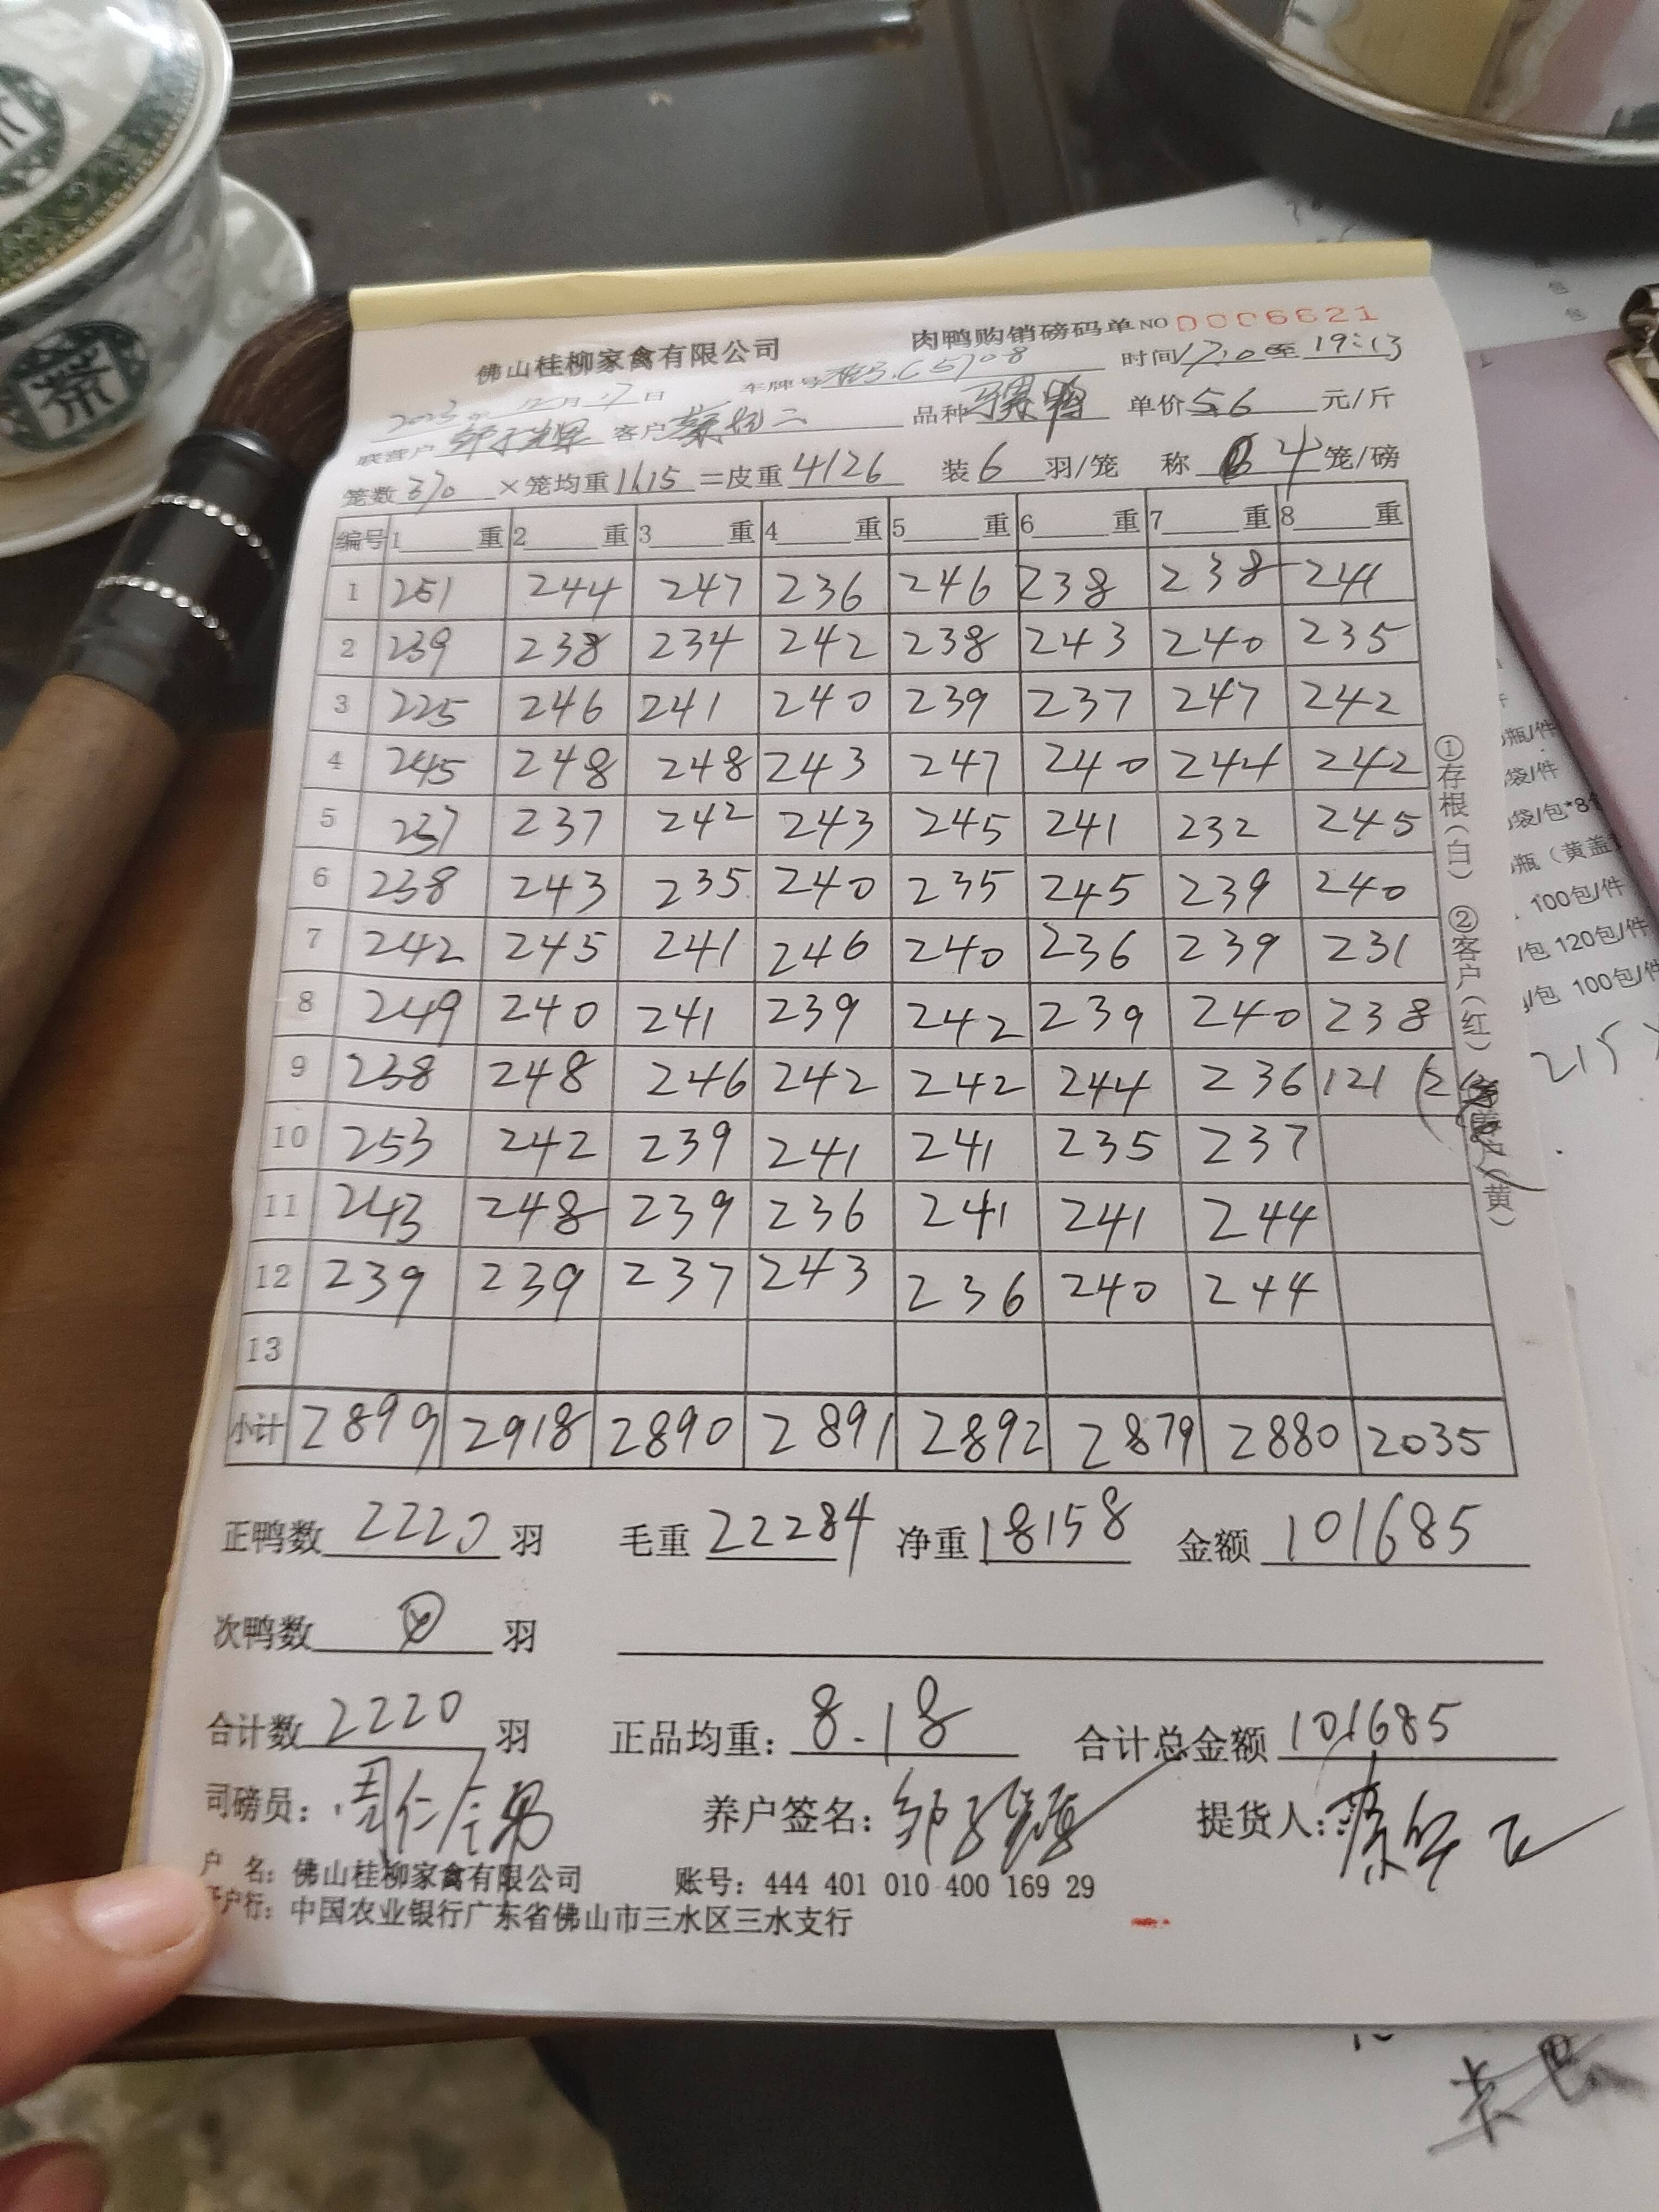 佛山桂柳家禽有限公司 肉鸭购销磅码单 NO 0006621
2023年 12月 17日 车牌号 C5708 时间17:10至19:13
联营户 客户 品种 骡鸭 单价5.6 元/斤
笼数370 ×笼均重11.15=皮重4126 装6 羽/笼 称 4笼/磅
编号 1 重 2 重 3 重 4 重 5 重 6 重 7 重 8 重
1 251 244 247 236 246 238 238 241
2 239 238 234 242 238 243 240 235
3 225 246 241 240 239 237 247 242
4 245 248 248 243 247 240 244 242
5 237 237 242 243 245 241 232 245
6 238 243 235 240 235 245 239 240
7 242 245 241 246 240 236 239 231
8 249 240 241 239 242 239 240 238
9 238 248 246 242 242 244 236 121
10 253 242 239 241 241 235 237
11 243 248 239 236 241 241 244
12 239 239 237 243 236 240 244
13
小计 2899 2918 2890 2891 2892 2879 2880 2035
正鸭数 2220 羽 毛重 22284 净重 18158 金额 101685
次鸭数 羽
合计数 2220 羽 正品均重: 8.18 合计总金额 101685
司磅员: 养户签名: 提货人:
户 名: 佛山桂柳家禽有限公司 账号: 444 401 010 400 169 29
开户行: 中国农业银行广东省佛山市三水区三水支行
①存根(白) ②客户(红) 养户(黄)
茶
瓶/件
袋/件
袋/包*8
瓶(黄盖
100包/件
/包 120包/件
/包 100包/件
215